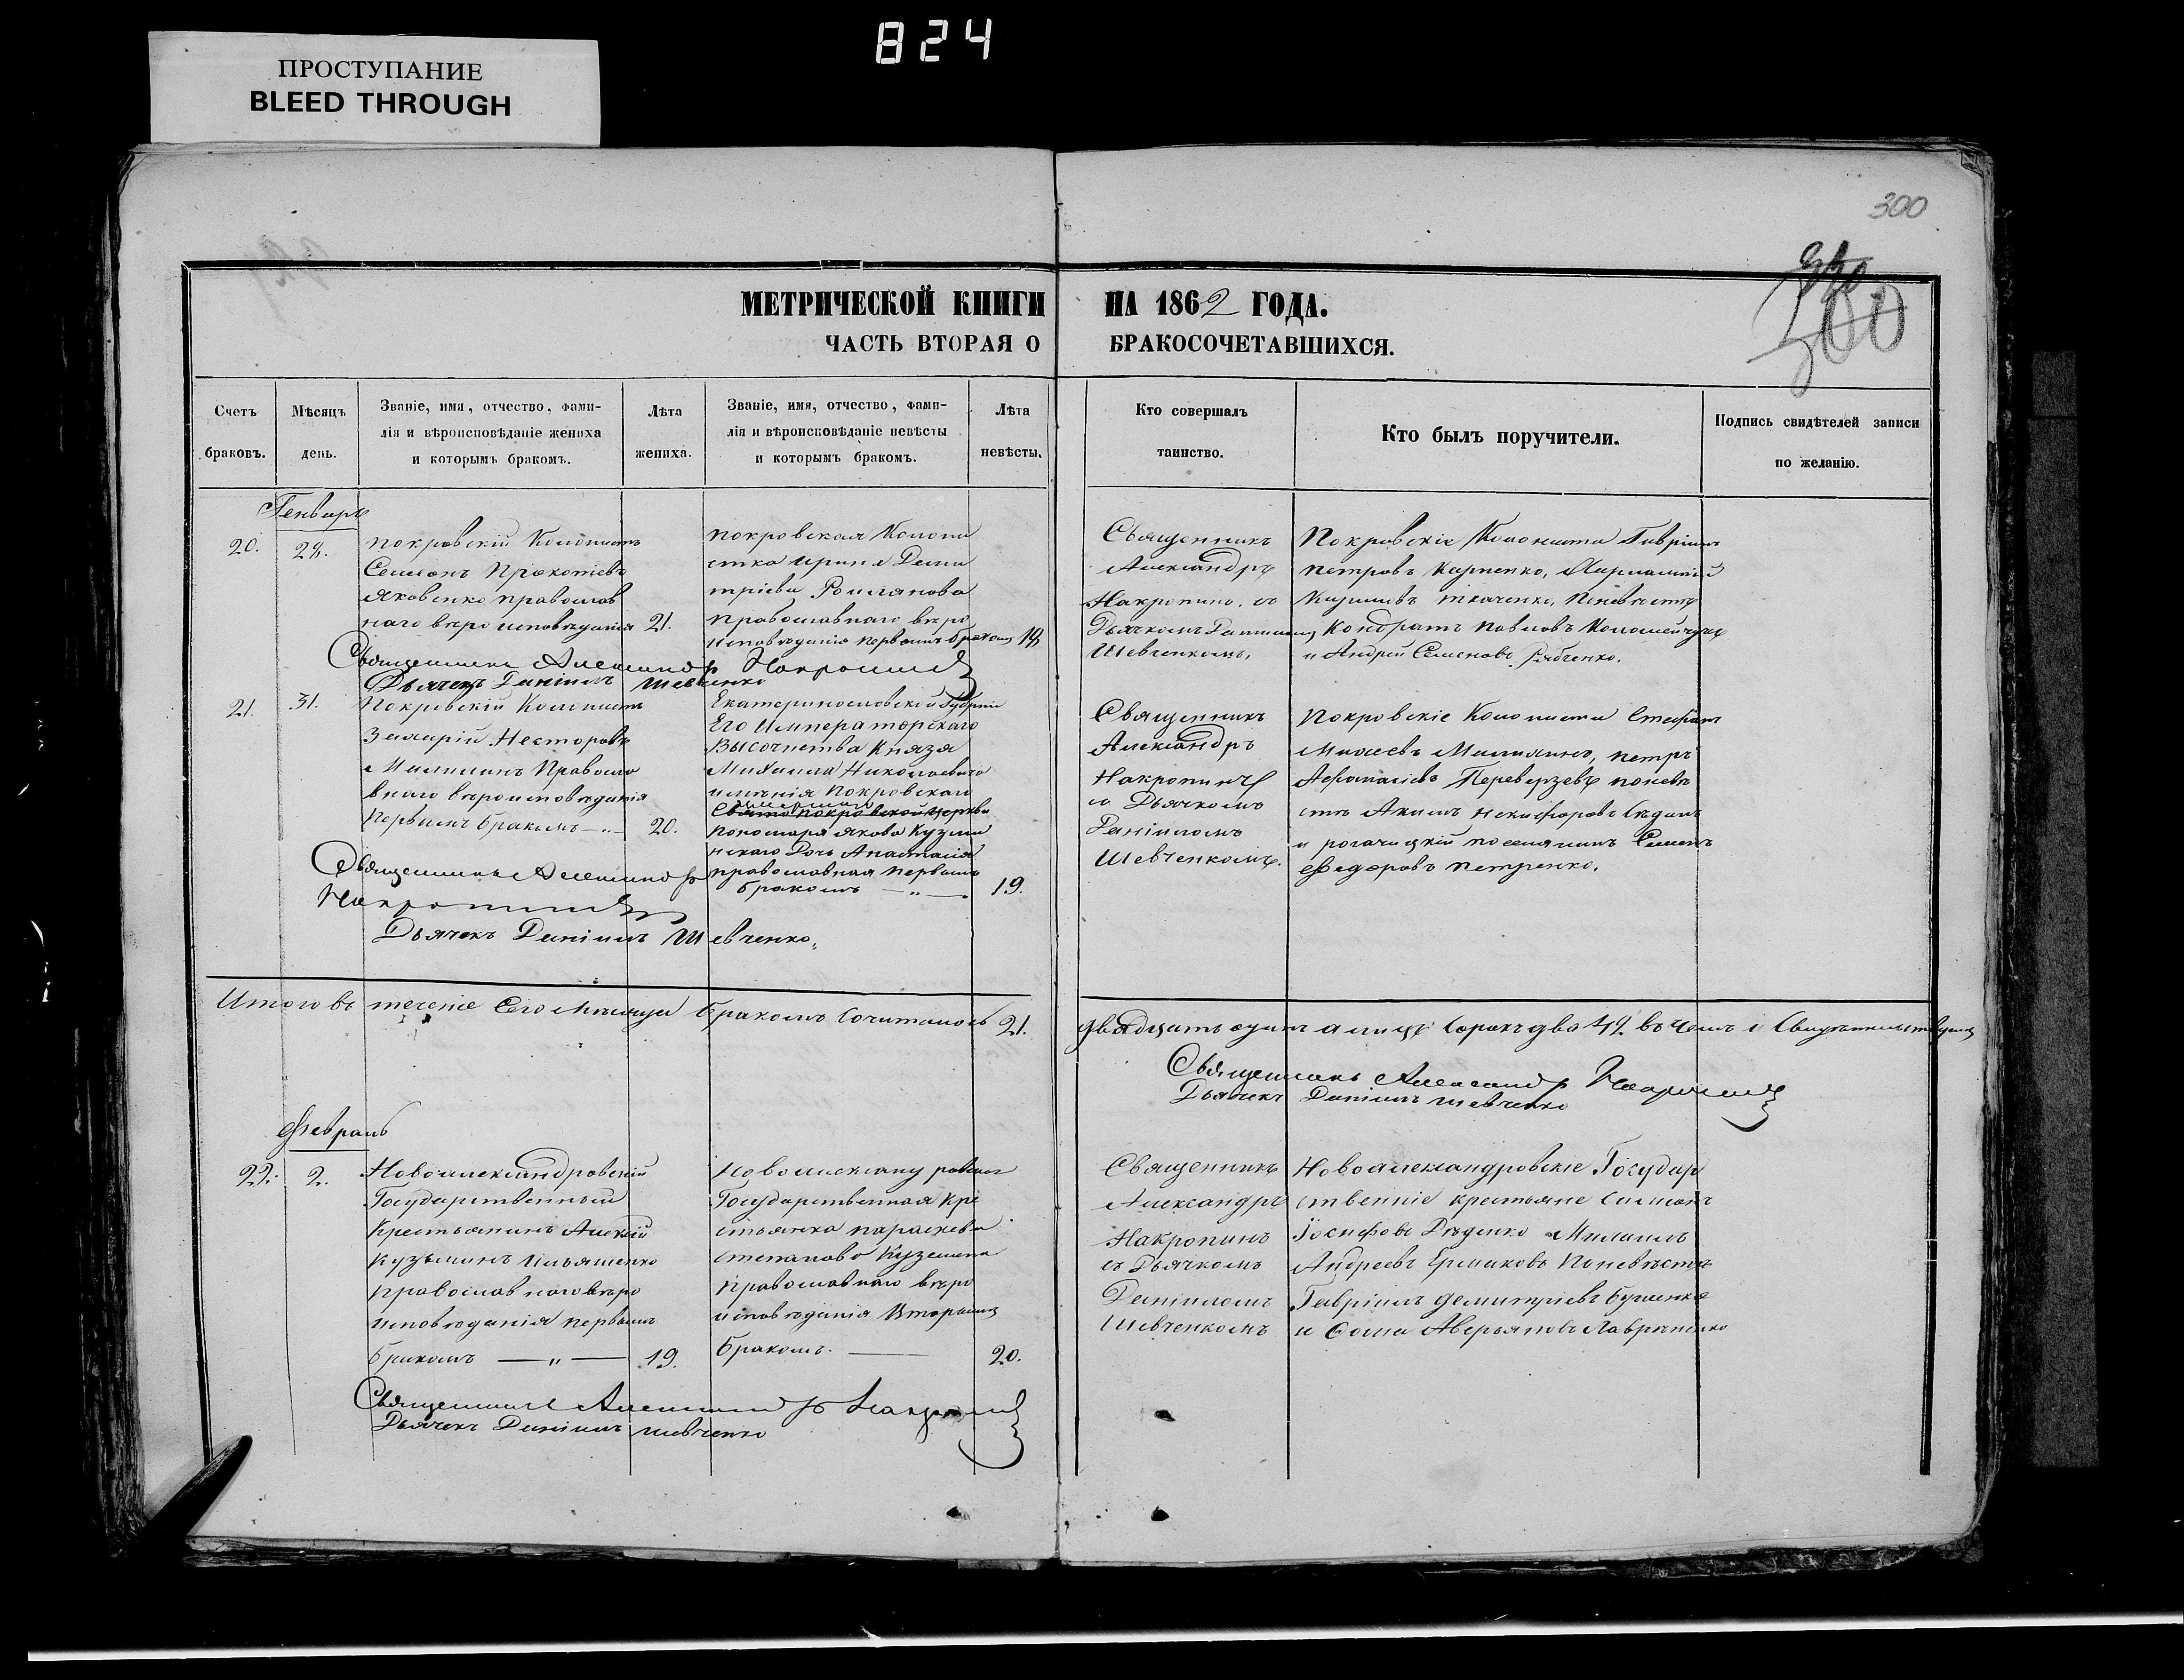 824
ПРОСТУПАНИЕ
BLEED THROUGH
300
МЕТРИЧЕСКОЙ КНИГИ НА 1862 ГОДА.
ЧАСТЬ ВТОРАЯ О БРАКОСОЧЕТАВШИХСЯ.
Счетъ
браковъ.
Мѣсяцъ
день.
Званіе, имя, отчество, фами-
лія и вѣроисповѣданіе жениха
и которымъ бракомъ.
Лѣта
жениха.
Званіе, имя, отчество, фами-
лія и вѣроисповѣданіе невѣсты
и которымъ бракомъ.
Лѣта
невѣсты.
Кто совершалъ
таинство.
Кто былъ поручители.
Подпись свидѣтелей записи
по желанію.
Генварь
20.
Покровскій Колонистъ
Семіонъ Прокопіевъ
Яковенко Православ
наго вѣроисповѣданія 21.
Покровская Колони
стка Ирина Дими
тріева Романова
Православнаго вѣро
исповѣданія первымъ бракомъ
Священникъ
Александръ
Накропинъ съ
Дьячкомъ Даніиломъ
Шевченкомъ.
Покровскіе Колонисты Гавріилъ
Петровъ Карпенко,
Ткаченко, Поневѣстѣ
Кондратъ Павловъ Коломейчукъ
и Андрей Семеновъ Рябченко.
Священникъ Александръ Накропинъ
Дьячекъ Даніилъ Шевченко
21. 31.
Покровскій Колонистъ
Захарій Несторовъ
Православ
наго вѣроисповѣданія
Первымъ бракомъ —„— 20.
Екатеринославской Губерніи
Его Императорскаго
Высочества Князя
Михаила Николаевича
имѣнія Покровскаго
Свято Покровской Церкви
Пономаря Якова Кузми
нскаго Дочь Анастасія
православная Первымъ
бракомъ —„— 19.
Священникъ
Александръ
Накропинъ
съ Дьячкомъ
Даніиломъ
Шевченкомъ.
Покровскіе Колонисты Стефанъ
Петръ
Афанасіевъ Переверзевъ поневѣ
стѣ Акимъ Никифоровъ
и рогачицкій поселянинъ Семенъ
Федоровъ Петренко.
Священникъ Александръ
Накропинъ
Дьячекъ Даніилъ Шевченко.
Итого въ теченіе Сего Мѣсяца Бракомъ Сочиталось 21. двадцать одинъ а лицъ сорокъ два 42 въ чемъ и Свидѣтельствуемъ
Священникъ Александръ Накропинъ
Дьячекъ Даніилъ Шевченко
Февраль
22. 2.
Новоалександровскій
Государственный
Крестьянинъ Алексѣй
Кузьминъ Ильяшенко
Православнаго вѣро
исповѣданія первымъ
бракомъ —„— 19.
Новоалександровская
Государственная Кре
стьянка Параскева
Степанова Куземена
Православнаго вѣро
исповѣданія Вторымъ
бракомъ. — 20.
Священникъ
Александръ
Накропинъ
съ Дьячкомъ
Даніиломъ
Шевченкомъ
Новоалександровскіе Государ
ственніе крестьяне Симеонъ
Іосифовъ Дѣденко Михаилъ
Андреевъ Ермаковъ Поневѣстѣ
Гавріилъ Демитріевъ
и Фома Аверьяновъ Лавриненко
Священникъ Александръ Накропинъ
Дьячекъ Даніилъ Шевченко